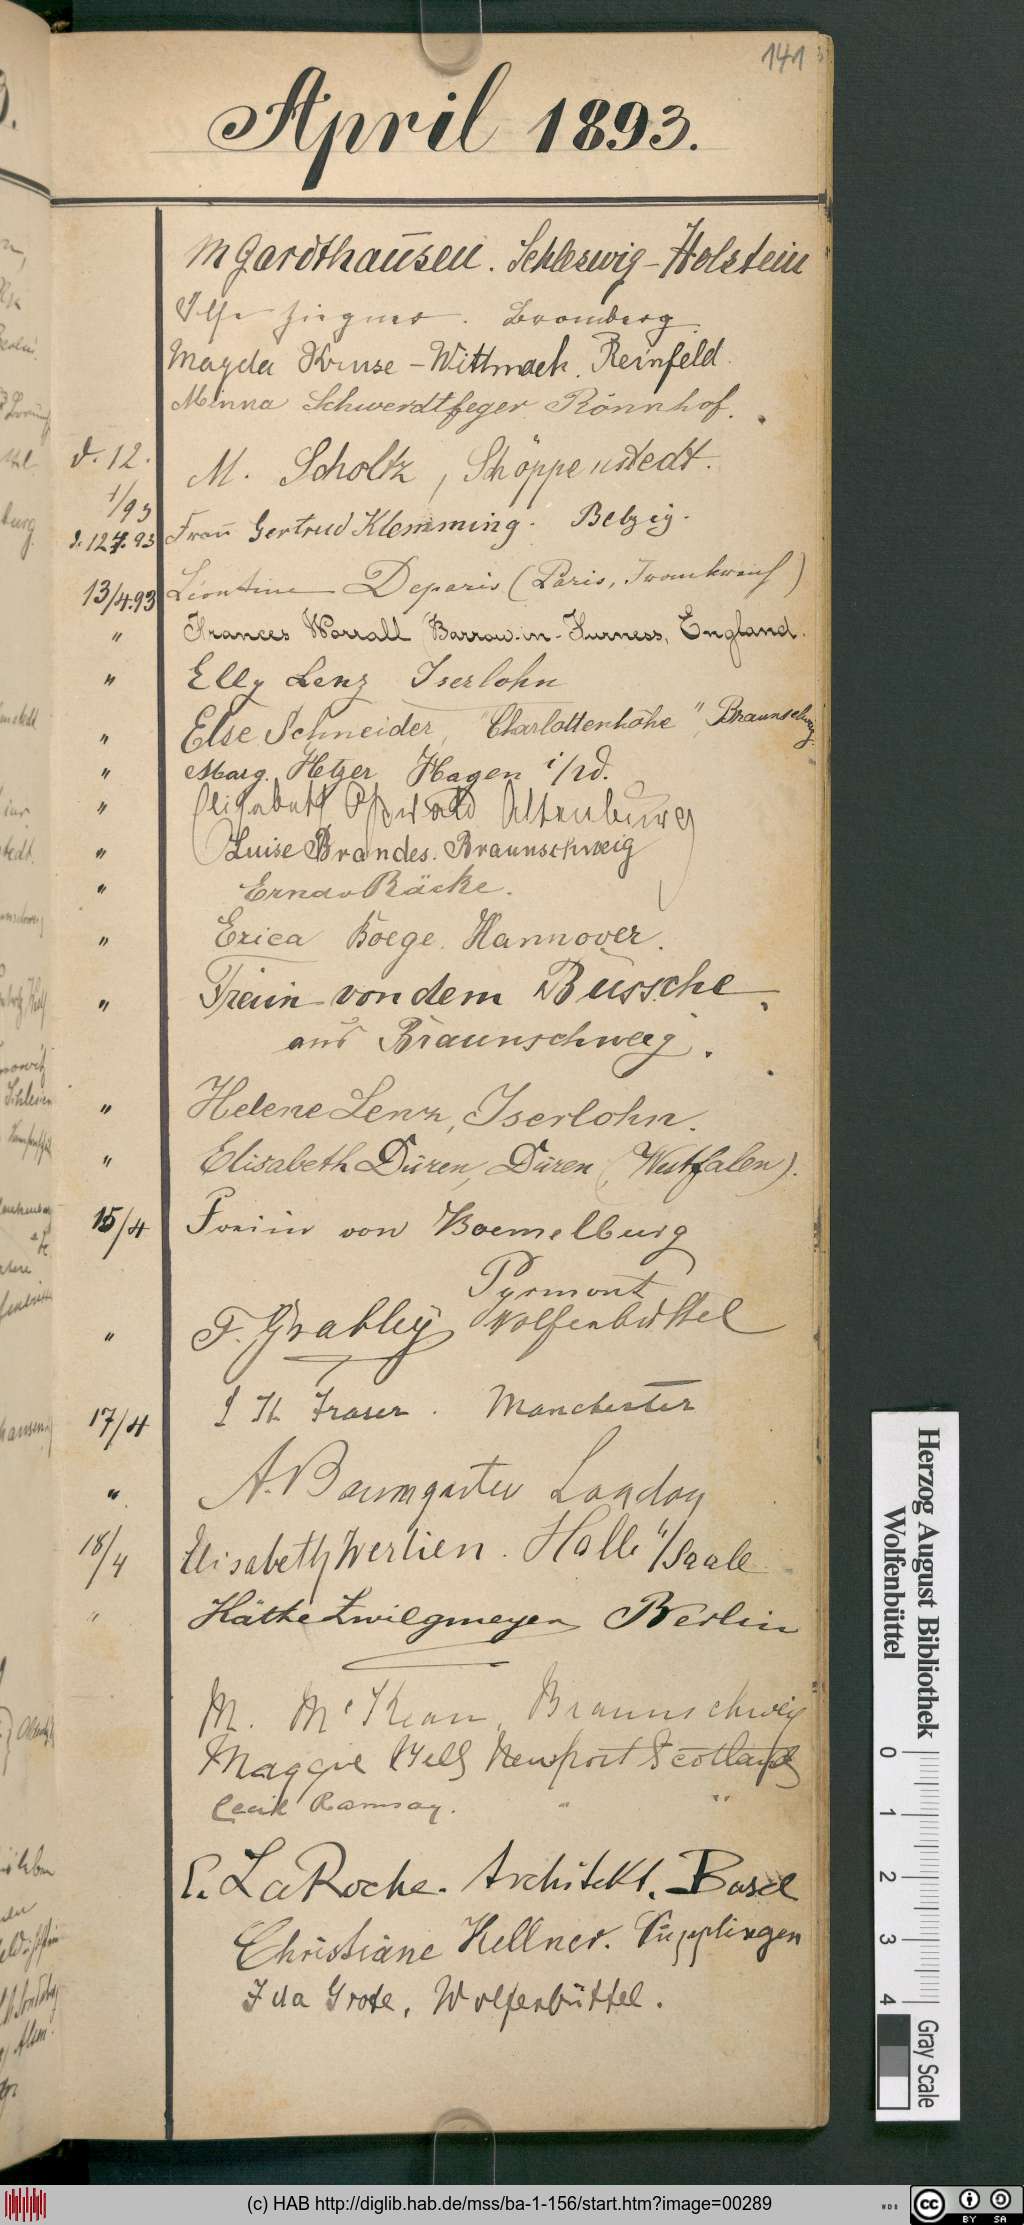 141
April 1893.
M Gardthausen. Schleswig-Holstein
Ilse Bromberg.
Magda Kruse-Wittmack. Reinfeld.
Minna Schwerdtfeger Rönnhof.
d. 12. M. Scholtz, Schöppenstedt.
4/93
d. 12.4.93 Frau Gertrud Klemming. Belzig.
13/4.93 Léontine Deparis (Paris, Frankreich)
" Frances Worrall (Barrow-in-Furness, England.
" Elly Lenz Iserlohn
" Else Schneider, "Charlottenhöhe", Braunschwg.
" Marg. Hetzer Hagen i/W.
" Elisabeth Osswald Altenburg
" Luise Brandes. Braunschweig
" Erna v Räcke.
" Erica Boege. Hannover.
" Freiin von dem Bussche
aus Braunschweig.
" Helene Lenz, Iserlohn.
" Elisabeth Düren, Düren (Westfalen).
15/4 Freiin von Boemelburg
Pyrmont
" F. Grabley Wolfenbüttel
17/4 J Th Fraser. Manchester
" A. Baumgarten London
18/4 Elisabeth Werlien. Halle a/Saale
" Käthe Zwilgmeyer Berlin
M. McKean, Braunschweig
Maggie Bell Newport Scotland
Cecil Ramsay. " "
E. LaRoche. Architekt. Basel
Christiane Kellner. Süpplingen
Ida Grote, Wolfenbüttel.
Herzog August Bibliothek
Wolfenbüttel
0 1 2 3 4
Gray Scale
(c) HAB http://diglib.hab.de/mss/ba-1-156/start.htm?image=00289
WDB
cc
BY SA